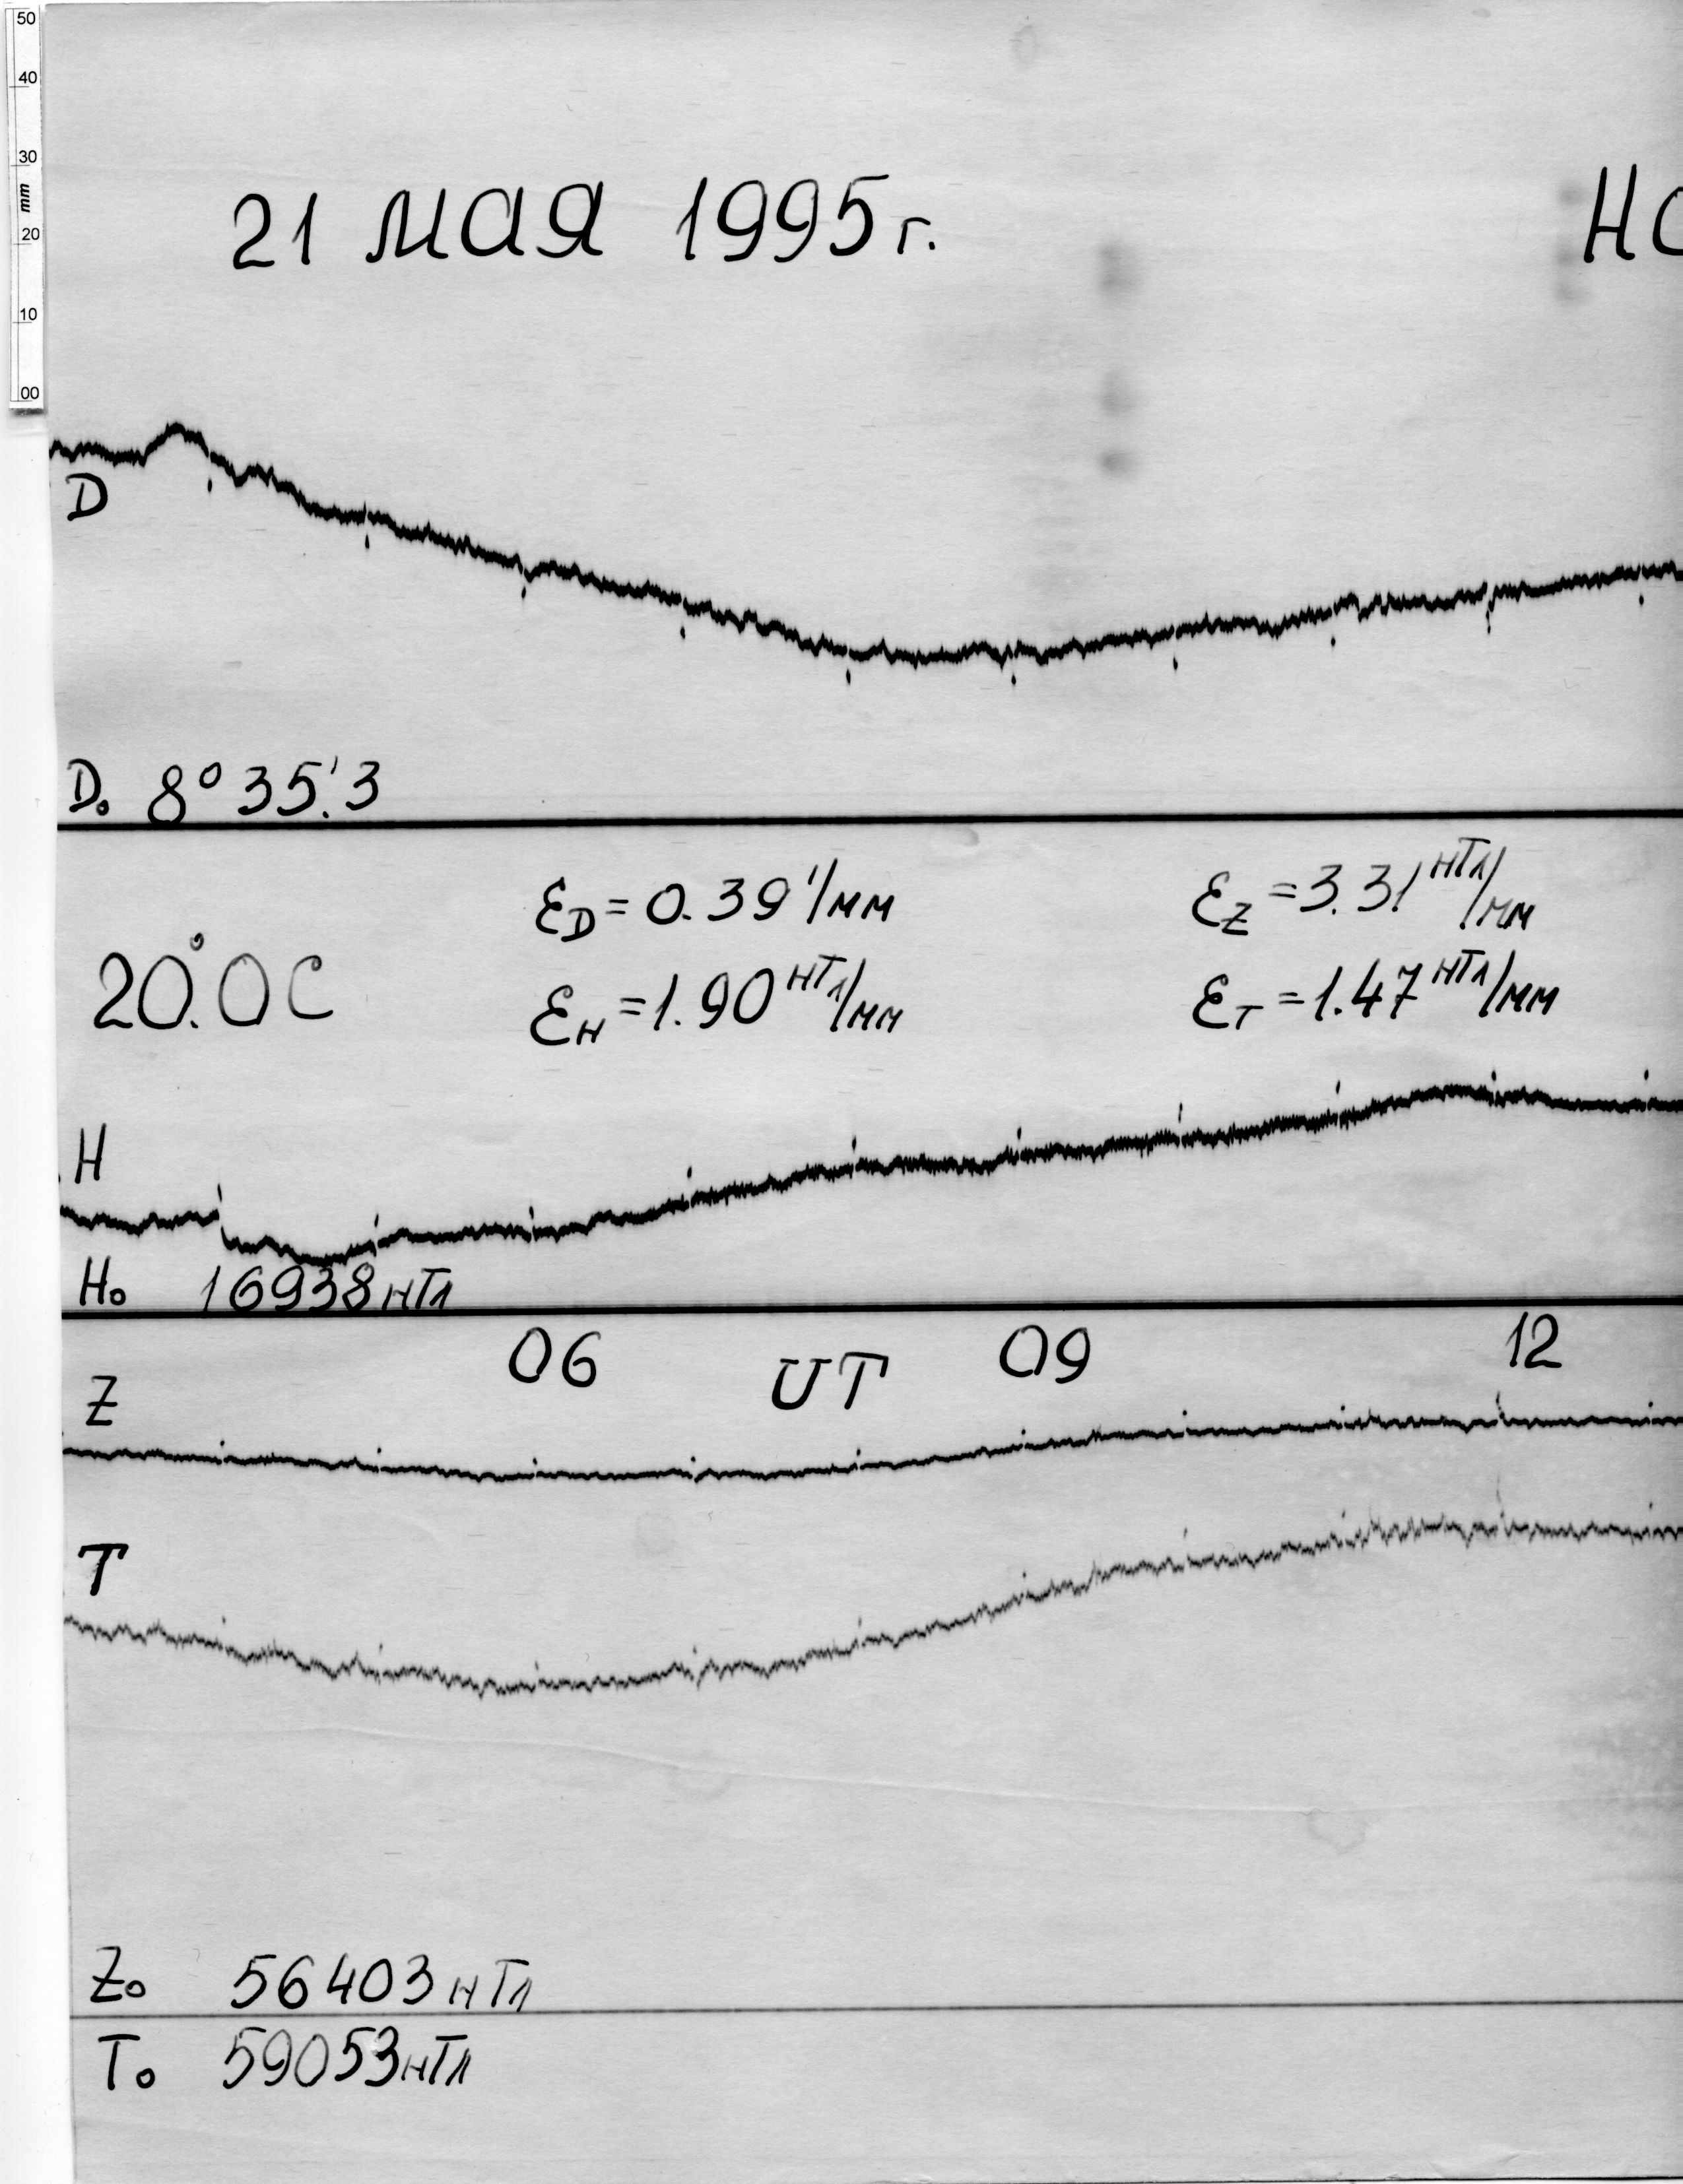 50
40
30
mm
20
10
00
21 мая 1995 г.
НО
D
D₀ 8°35.'3
20.°0 С
Ɛ_D = 0.39 '/мм
Ɛ_Z = 3.31 нТл/мм
Ɛ_H = 1.90 нТл/мм
Ɛ_T = 1.47 нТл/мм
H
H₀ 16938 нТл
06 UT 09 12
Z
T
Z₀ 56403 нТл
T₀ 59053 нТл